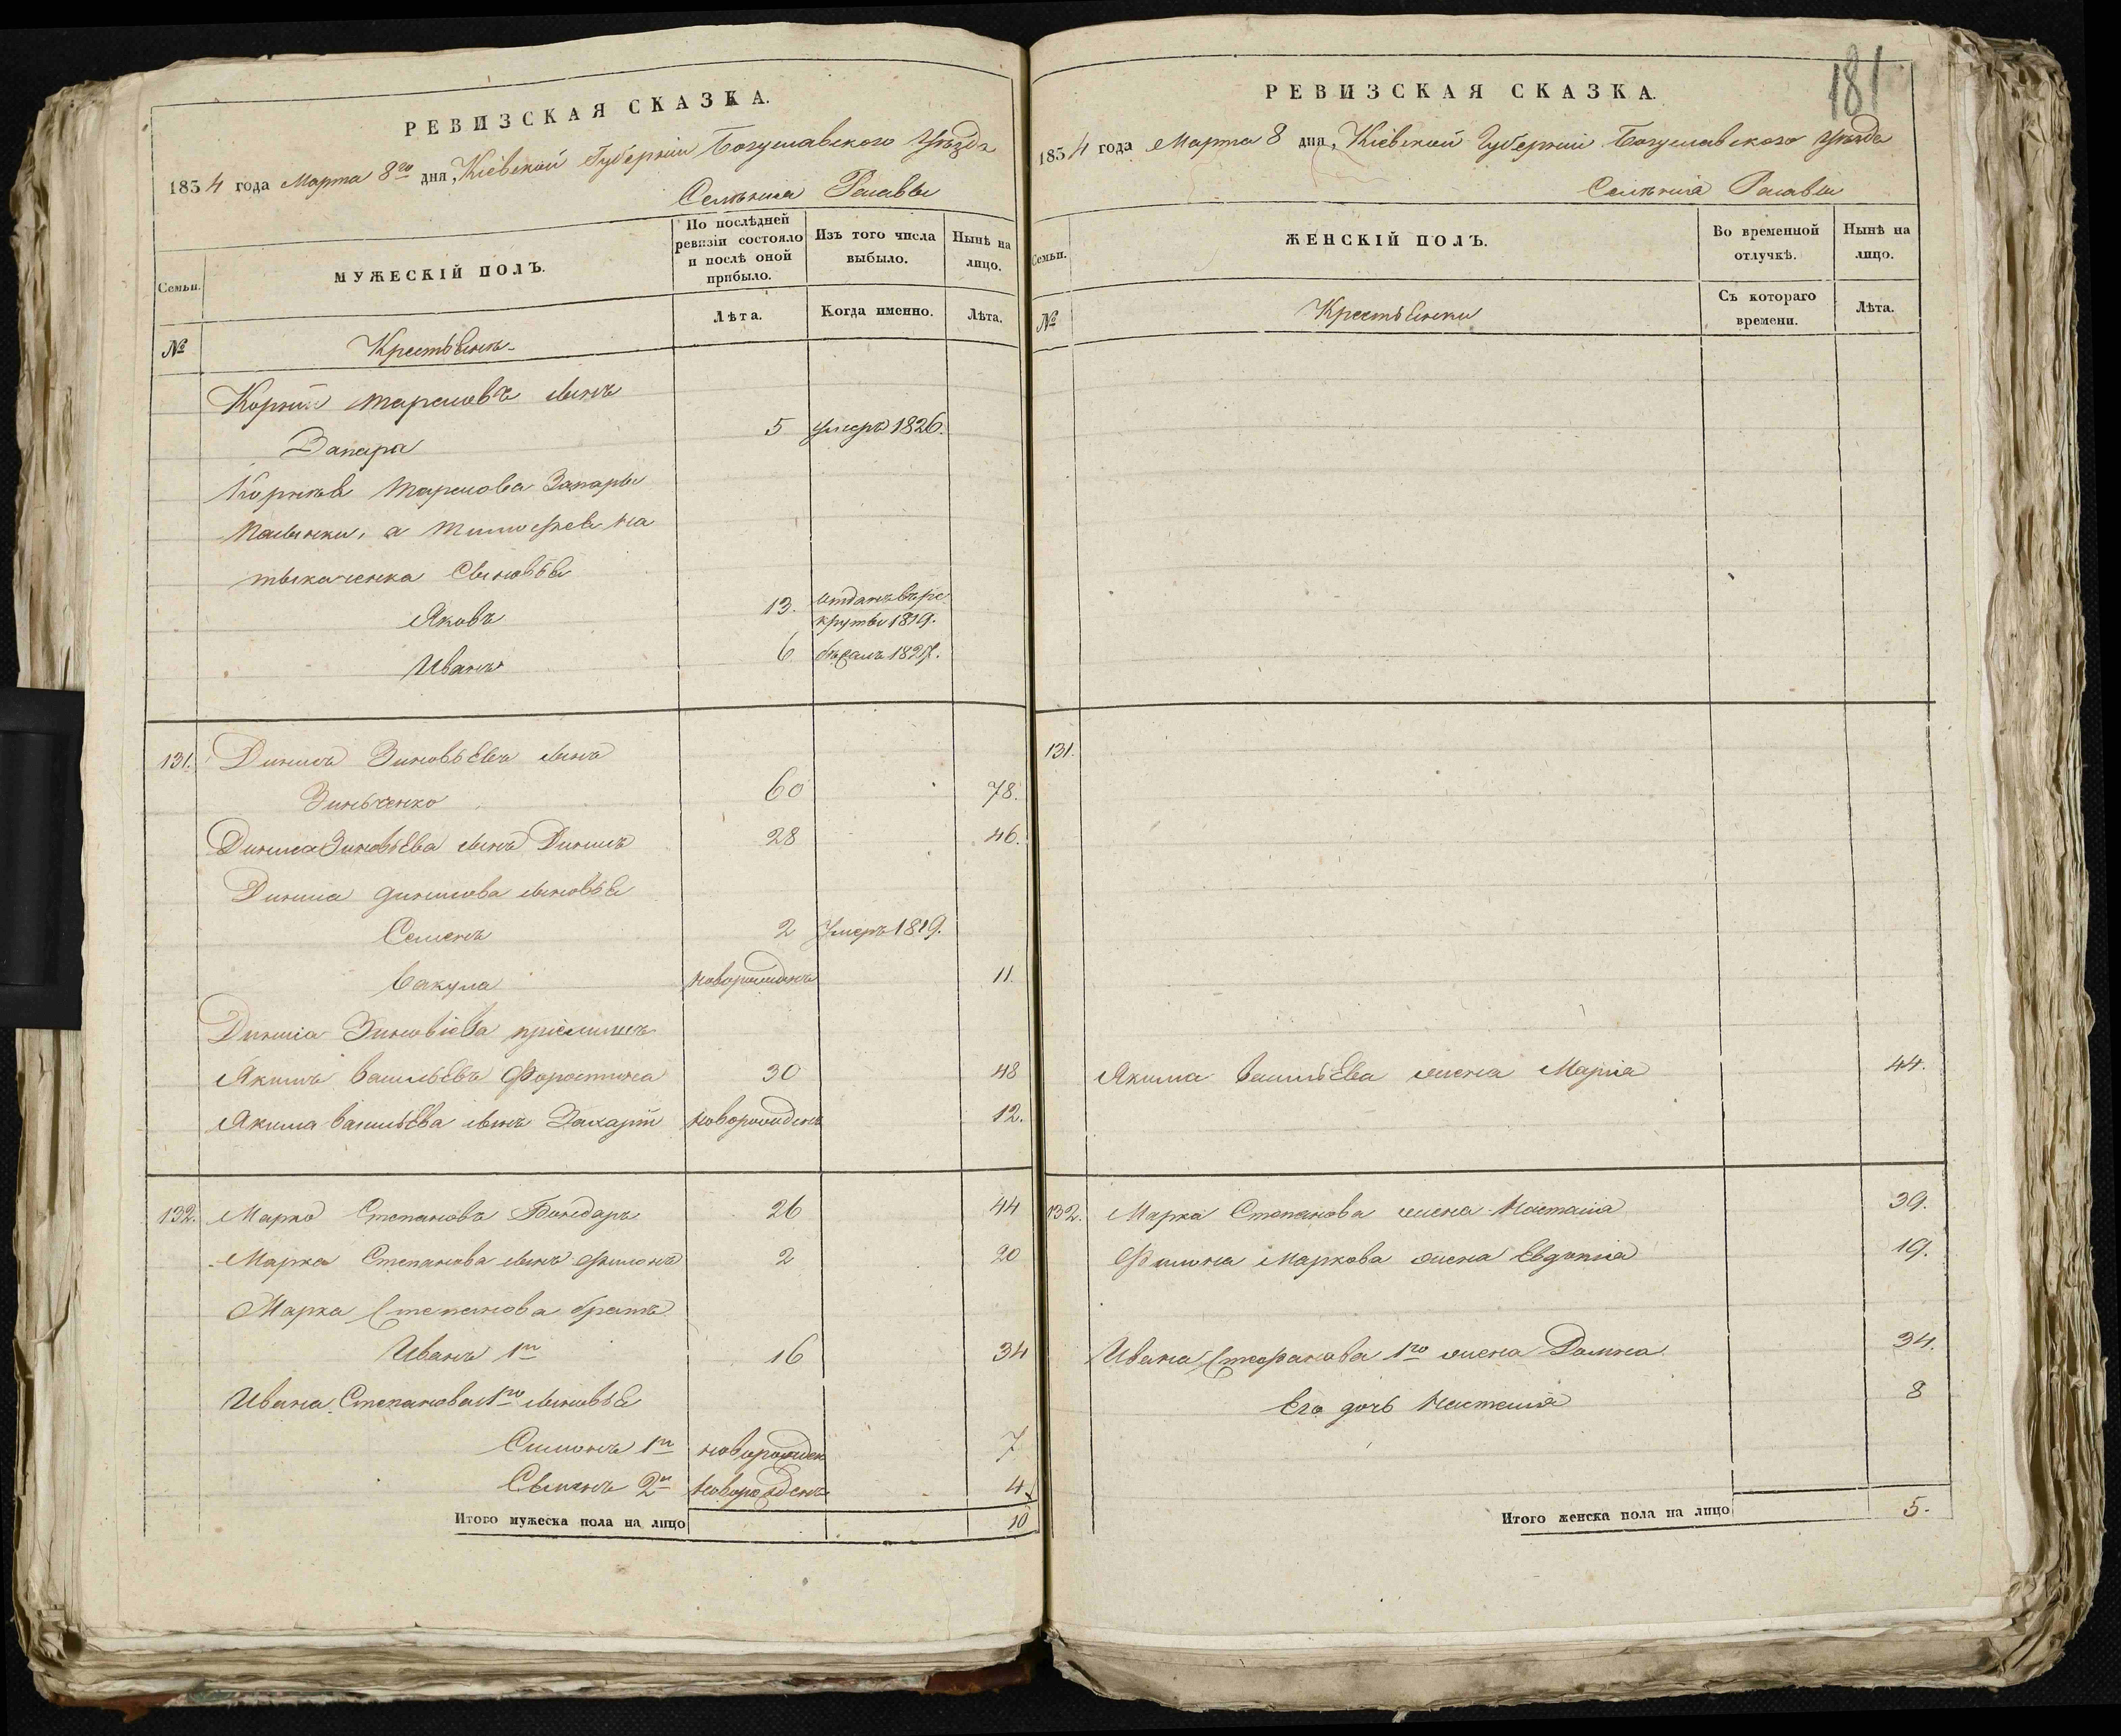 РЕВИЗСКАЯ СКАЗКА.
1834 года Марта 8го дня, Кіевской Губерніи Богуславского Уѣзда
Селенія Расавы
Семьи.
МУЖЕСКІЙ ПОЛЪ.
По послѣдней ревизіи состояло и послѣ оной прибыло.
Изъ того числа выбыло.
Нынѣ на лицо.
№
Крестьянъ
Лѣта.
Когда именно.
Лѣта.
Корнѣй Тарасовъ сынъ
Запара 5 умеръ 1826.
Корнѣя Тарасова Запары
пасынки, а Тимофея на
ткаченка Сыновья
Яковъ 13. отданъ въ ре-
круты 1819.
Иванъ 6 бѣжалъ 1827.
131. Динисъ Зиновьевъ сынъ
Зинченко 60 78.
Диниса Зиновьева сынъ Динисъ 28 46.
Диниса Динисова сыновья
Семенъ 2 Умеръ 1819.
Вакула новорожденъ 11.
Диниса Зиновіева пріемышъ
Якимъ Васильевъ Форостина 30 48
Якима Васильева сынъ Захарій новорожденъ 12.
132. Марко Степановъ Бондарь 26 44
Марка Степанова сынъ Филонъ 2 20
Марка Степанова братъ
Иванъ 1й 16 34
Ивана Степанова 1го сыновья
Симонъ 1й новорожден 7
Симонъ 2й новорожденъ 4
Итого мужеска пола на лицо 10
181
РЕВИЗСКАЯ СКАЗКА.
1834 года Марта 8 дня, Кіевской Губерніи Богуславского Уѣзда
Селенія Расавы
Семьи.
ЖЕНСКІЙ ПОЛЪ.
Во временной отлучкѣ.
Нынѣ на лицо.
№
Крестьянки
Съ котораго времени.
Лѣта.
131.
Якима Васильева жена Марія 44.
132. Марка Степанова жена Настасія 39.
Филона Маркова жена Евдокія 19.
Ивана Стефанова 1го жена Домна 34.
Его дочь Настасія 8
Итого женска пола на лицо 5.